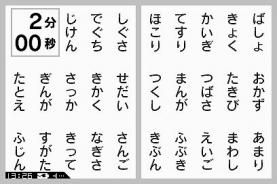 2分
00秒
ばしょ
おかず
あまり
きょく
たきび
まわし
かいぎ
つばさ
えいご
てすり
まんが
ふぶき
ほこり
つくし
きぶん
しぐさ
せだい
さんご
でぐち
きかく
なぎさ
じけん
さっか
きって
ぎんが
すがた
たとえ
ふじん